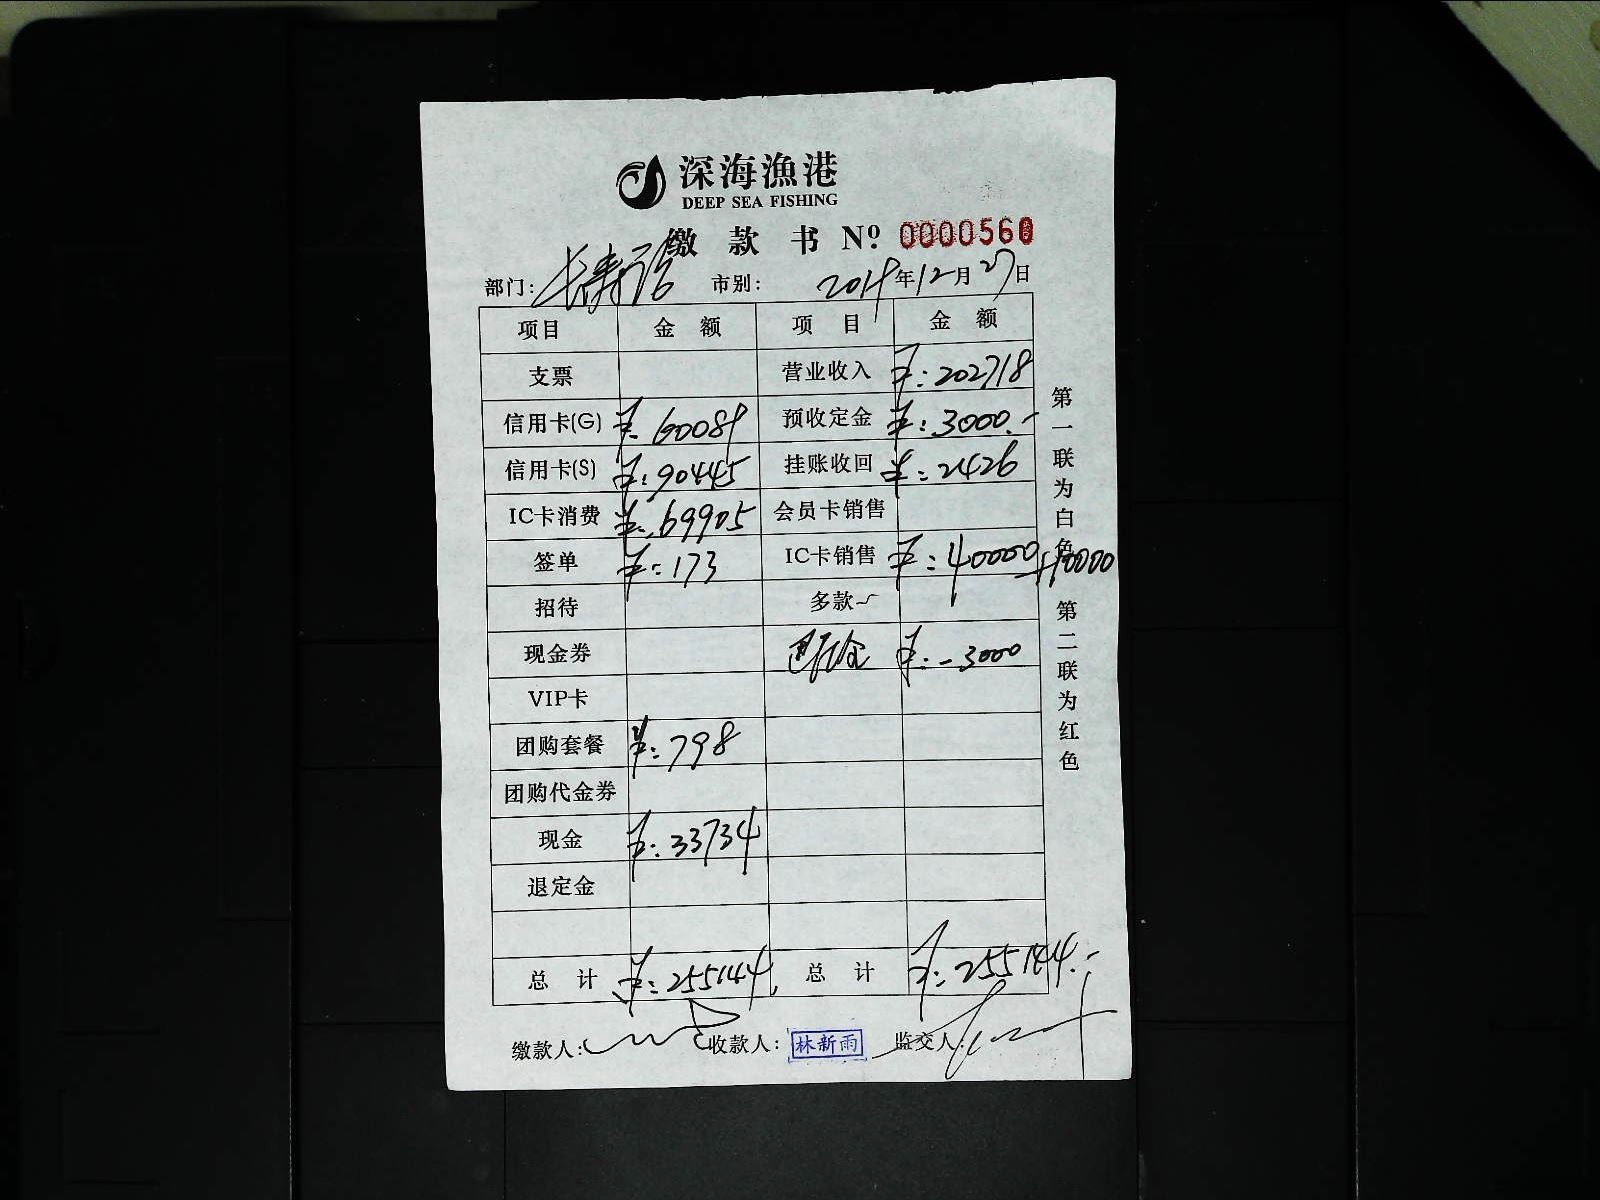 深海漁港
DEEP SEA FISHING
缴款书 Nº 0000560
部门: 长寿路 市别: 2019年12月27日
项目 金额 项目 金额
支票 营业收入 ¥:202718
信用卡(G) ¥:60089 预收定金 ¥:3000.-
信用卡(S) ¥:90445 挂账收回 ¥:2426
IC卡消费 ¥:69905 会员卡销售
签单 ¥:173 IC卡销售 ¥:40000+10000
招待 多款
现金券 ¥:-3000
VIP卡
团购套餐 ¥:798
团购代金券
现金 ¥:33734
退定金
总计 ¥:255144 总计 ¥:255144.-
缴款人: 收款人: 林新雨 监交人:
第一联为白色 第二联为红色